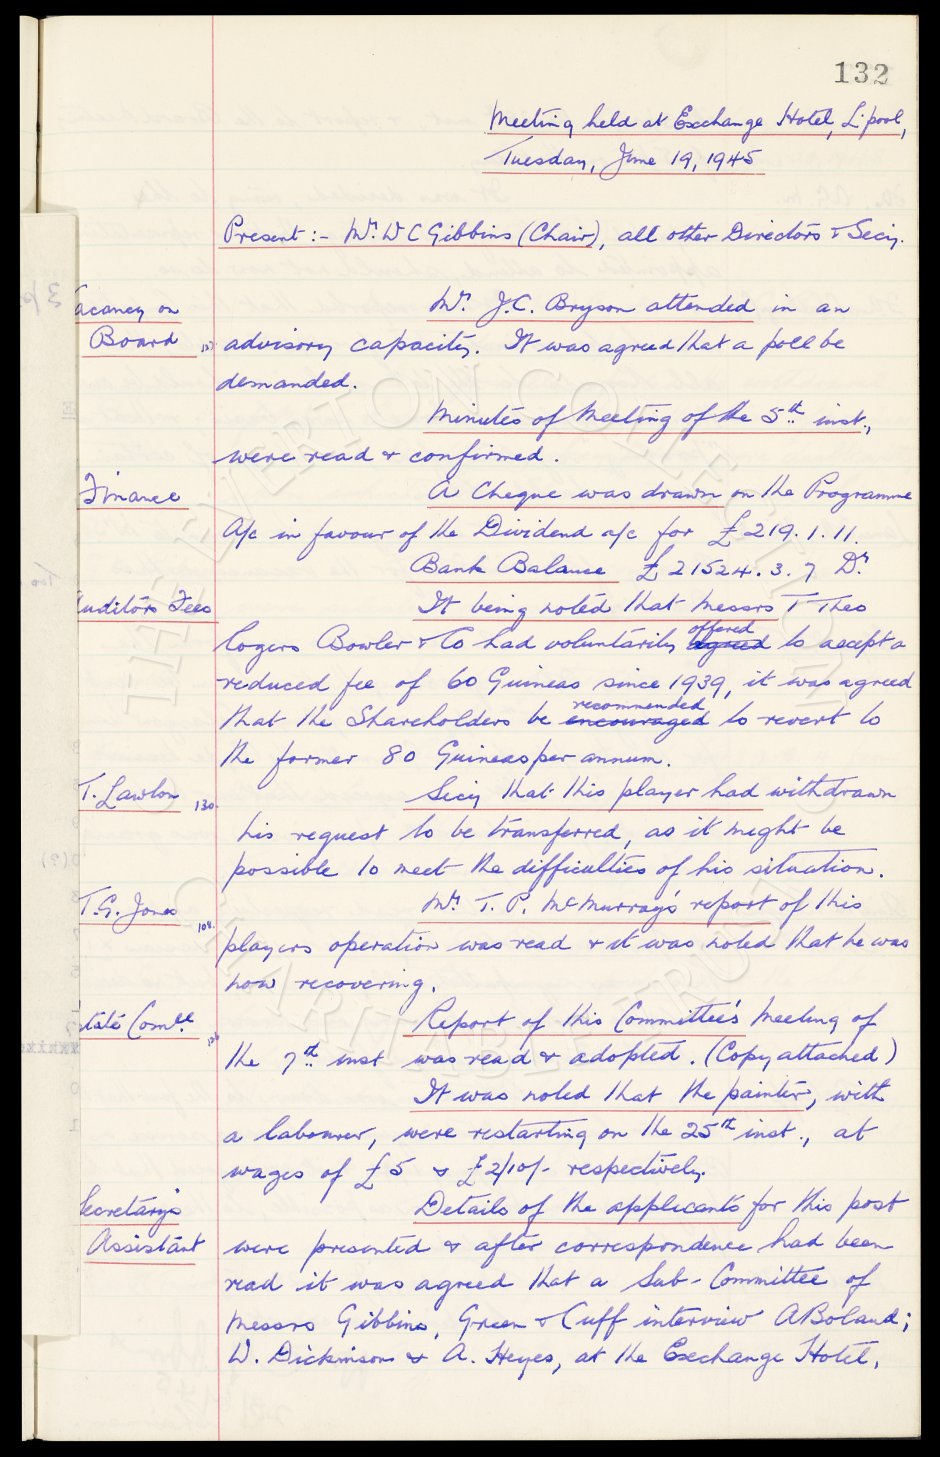 132
Meeting held at Exchange Hotel, L'pool,
Tuesday, June 19, 1945
Present :- Mr. W C Gibbins (Chair), all other Directors & Secy.
acancy on
Board
Mr. J.C. Bryson attended in an
advisory capacity. It was agreed that a poll be
demanded.
Minutes of Meeting of the 5th inst.,
were read & confirmed.
Finance
A Cheque was drawn on the Programme
A/c in favour of the Dividend a/c for £219.1.11.
Bank Balance £21524.3.7 Dr
uditors Fees
It being noted that Messrs T Theo
Rogers Bowler & Co had voluntarily agreed offered to accept a
reduced fee of 60 Guineas since 1939, it was agreed
that the Shareholders be encouraged recommended to revert to
the former 80 Guineas per annum.
T. Lawton 130.
Secy that this player had withdrawn
his request to be transferred, as it might be
possible to meet the difficulties of his situation.
T.G. Jones 108.
Mr T. P. McMurray's report of this
players operation was read & it was noted that he was
now recovering.
tate Comee.
Report of this Committee's Meeting of
the 7th inst was read & adopted. (Copy attached)
It was noted that the painter, with
a labourer, were restarting on the 25th inst., at
wages of £5 & £2/10/- respectively.
Secretary's
Assistant
Details of the applicants for this post
were presented & after correspondence had been
read it was agreed that a Sub-Committee of
Messrs Gibbins, Green & Cuff interview A Boland;
W. Dickinson & A. Heyes, at the Exchange Hotel,
THE EVERTON COLLECTION
CHARITABLE TRUST